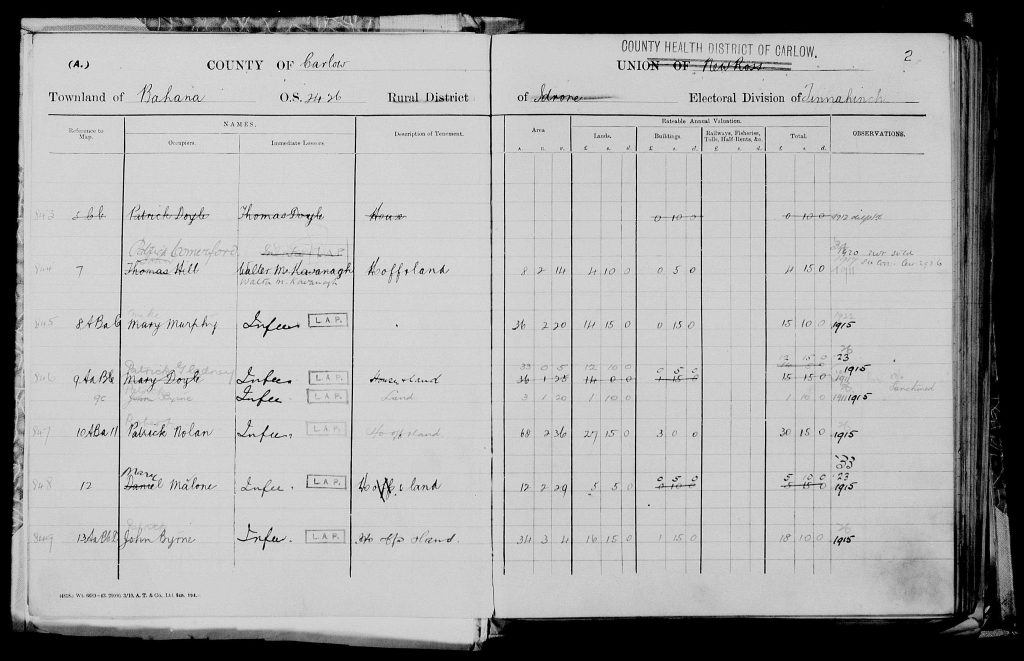 (A.) COUNTY OF Carlow COUNTY HEALTH DISTRICT OF CARLOW. 2
UNION OF New Ross
Townland of Bahana O.S. 24.26 Rural District of Idrone Electoral Division of Tinnahinch
Reference to Map. NAMES. Description of Tenement. Area Rateable Annual Valuation. OBSERVATIONS.
Occupiers. Immediate Lessors. A. R. P. Lands. Buildings. Railways, Fisheries, Tolls, Half Rents, &c. Total.
£ s. d. £ s. d. £ s. d. £ s. d.
843 Patrick Doyle Thomas Doyle House 0 10 0 0 10 0 1912
Patrick Comerford L.A.P.
844 7 Thomas Hill Walter McKavanagh Ho offs land 8 2 14 4 10 0 0 5 0 4 15 0 1920
Walter M. Kavanagh 1911
845 8 Mary Murphy In fee L.A.P. 36 2 20 14 15 0 0 15 0 15 10 0 1915
Patrick Gladney 33 0 5 12 10 0 0 5 0 12 15 0 23
846 9AaBb Mary Doyle In fee L.A.P. House & land 36 1 25 14 0 0 1 15 0 15 15 0 1915
9c John Byrne In fee L.A.P. Land 3 1 20 1 10 0 1 10 0 1911 1915
847 10ABa11 Patrick Nolan In fee L.A.P. Ho offs land 68 2 36 27 15 0 3 0 0 30 15 0 1915
Mary 0 5 0 5 10 0 23
848 12 Daniel Malone In fee L.A.P. Ho & land 12 2 29 5 5 0 0 10 0 5 15 0 1915
849 John Byrne In fee L.A.P. Ho offs & land. 34 3 4 16 15 0 1 15 0 18 10 0 1915